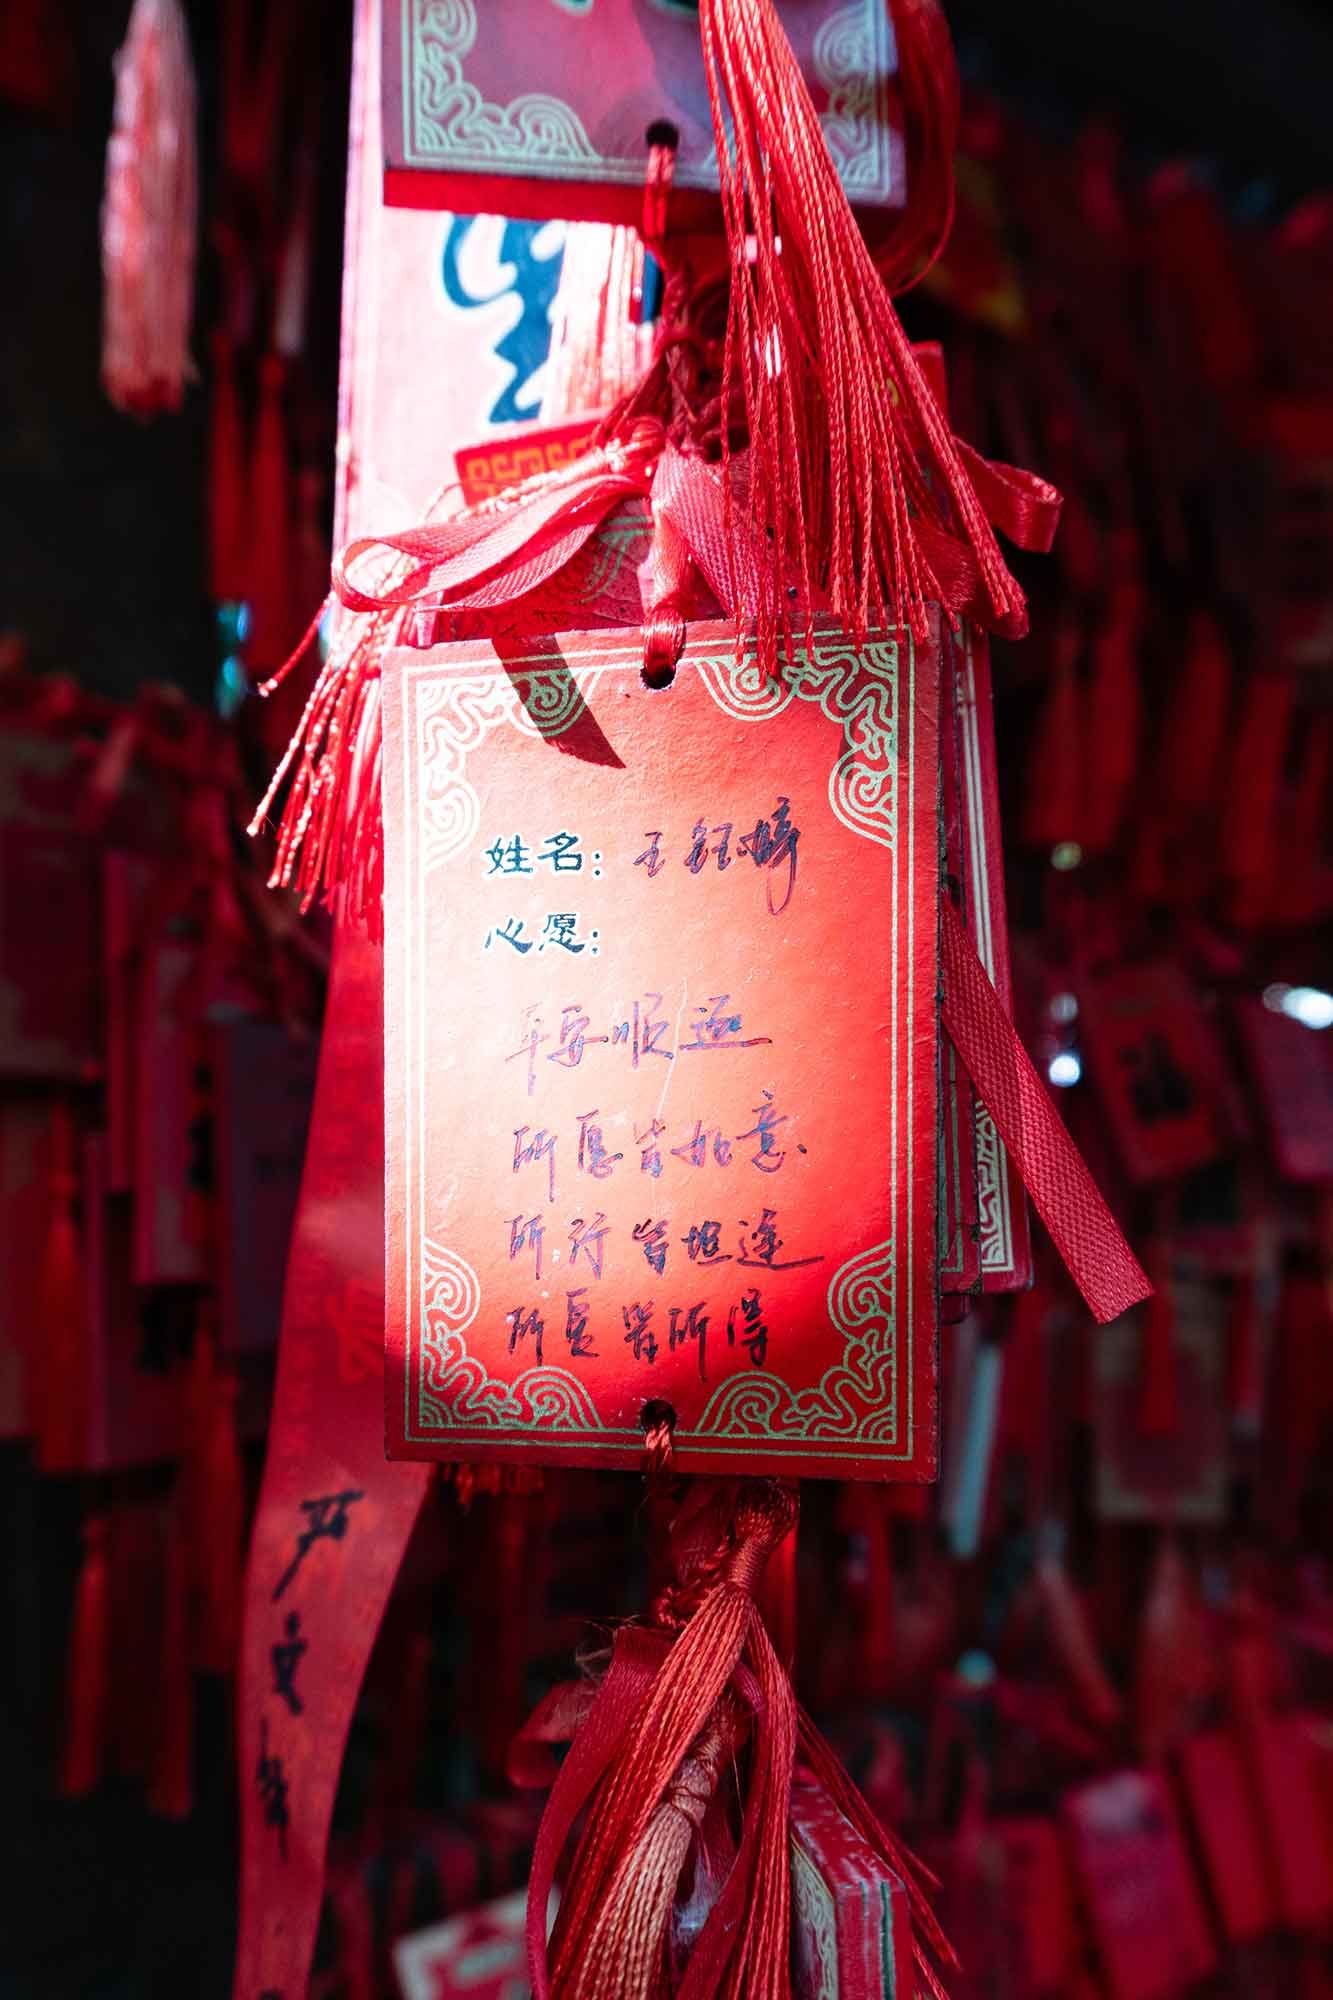 姓名：王钰婷
心愿：
平安顺遂
所愿皆如意、
所行皆坦途
所愿皆所得
严文